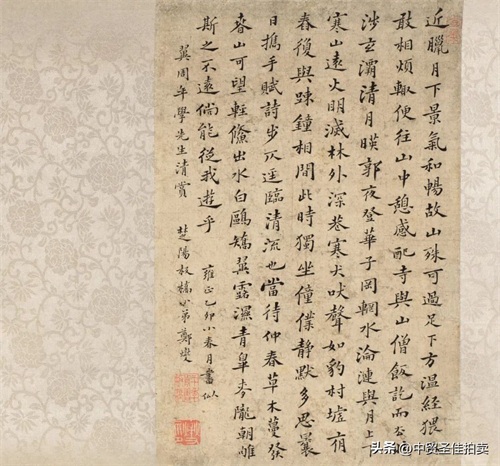 近臘月下景氣和暢故山殊可過足下方温經猥
敢相煩輒便往山中憩感配寺與山僧飯訖而
涉玄灞清月暎郭夜登華子岡輞水淪漣與月上
寒山遠火明滅林外深巷寒犬吠聲如豹村墟
舂復與疎鐘相間此時獨坐僮僕靜默多思曩
日攜手賦詩步仄逕臨清流也當待仲春草木蔓發
春山可望輕鯈出水白鷗矯翼露濕青皋麥隴朝雊
斯之不遠倘能從我遊乎
雍正乙卯小春月書似
翼周年學先生清賞
楚陽板橋弟鄭燮
头条 @中贸圣佳拍卖